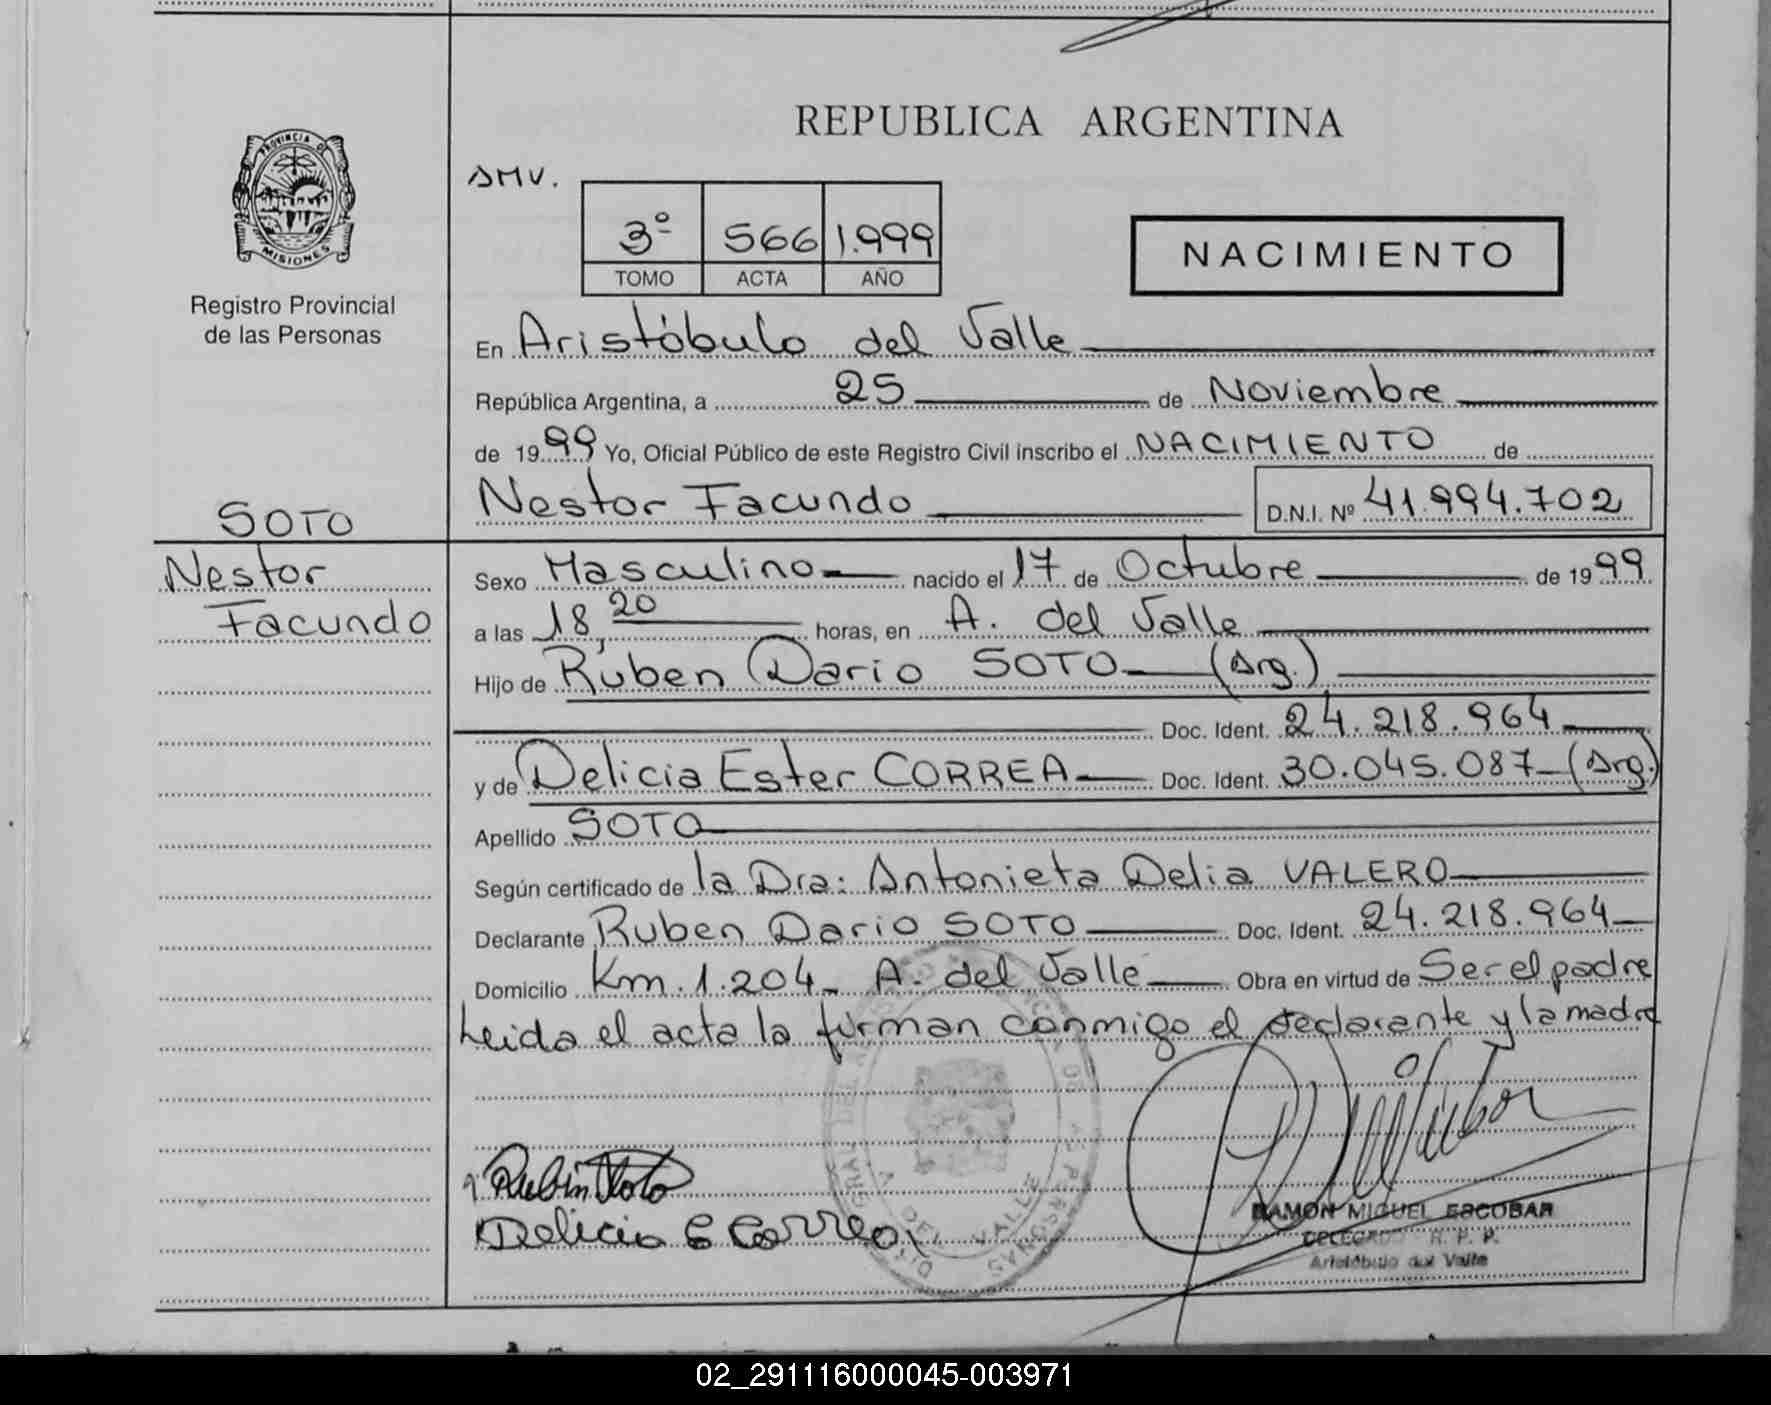 REPUBLICA ARGENTINA
PROVINCIA DE
MISIONES
Registro Provincial
de las Personas
SMV.
3º 566 1.999
TOMO ACTA AÑO
NACIMIENTO
En Aristóbulo del Valle
República Argentina, a 25 de Noviembre
de 1999 Yo, Oficial Público de este Registro Civil inscribo el NACIMIENTO de
SOTO
Nestor Facundo D.N.I. Nº 41.994.702
Nestor
Facundo
Sexo Masculino nacido el 17 de Octubre de 1999
a las 18,20 horas, en A. del Valle
Hijo de Ruben Dario SOTO (Arg.)
Doc. Ident. 24.218.964
y de Delicia Ester CORREA Doc. Ident. 30.045.087 (Arg.)
Apellido SOTO
Según certificado de la Dra: Antonieta Delia VALERO
Declarante Ruben Dario SOTO Doc. Ident. 24.218.964
Domicilio Km. 1.204 A. del Valle Obra en virtud de Ser el padre
Leida el acta la firman conmigo el declarante y la madre
Rubin Soto
Delicia E Correa
RAMON MIGUEL ESCOBAR
DELEGADO R. P. P.
Aristóbulo del Valle
A DEL VALLE
02_291116000045-003971